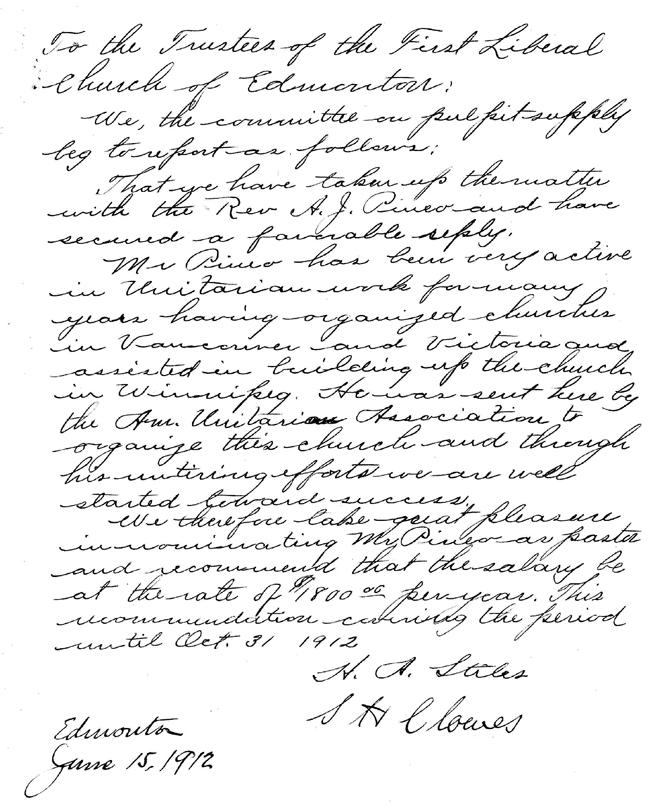 To the Trustees of the First Liberal
Church of Edmonton:
We, the committee on pulpit supply
beg to report as follows:
That we have taken up the matter
with the Rev A. J. Pineo and have
secured a favorable reply.
Mr Pineo has been very active
in Unitarian work for many
years having organized churches
in Vancouver and Victoria and
assisted in building up the church
in Winnipeg. He was sent here by
the Am. Unitarian Association to
organize this church and through
his untiring efforts we are well
started toward success.
We therefore take great pleasure
in nominating Mr Pineo as pastor
and recommend that the salary be
at the rate of $1800 00 per year. This
recommendation covering the period
until Oct. 31 1912
H. A. Stiles
S H Clowes
Edmonton
June 15, 1912